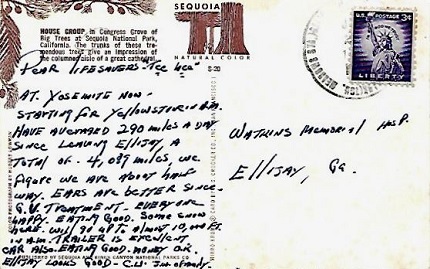 HOUSE GROUP, in Congress Grove of
Big Trees at Sequoia National Park,
California. The trunks of these tre-
mendous trees give an impression of
the columned aisle of a great cathedral.
SEQUOIA
NATURAL COLOR
S-20
U.S. POSTAGE 3¢
LIBERTY
DEAR LIFESAVERS -
AT YOSEMITE NOW -
STARTING FOR YELLOWSTONE IN A.M.
HAVE AVERAGED 290 MILES A DAY
SINCE LEAVING ELLIJAY, A
TOTAL OF 4,089 MILES, WE
FIGURE WE ARE ABOUT HALF
WAY. EARS ARE BETTER SINCE
TREATMENT - EVERYONE
HAPPY. EATING GOOD. SOME SNOW
HERE. WILL GO UP TO ALMOST 10,000 FT.
IN A.M. TRAILER IS EXCELLENT
CAR ALSO. EATING GOOD. MONEY O.K.
ELLIJAY LOOKS GOOD -
WATKINS MEMORIAL HOSP.
ELLIJAY, GA.